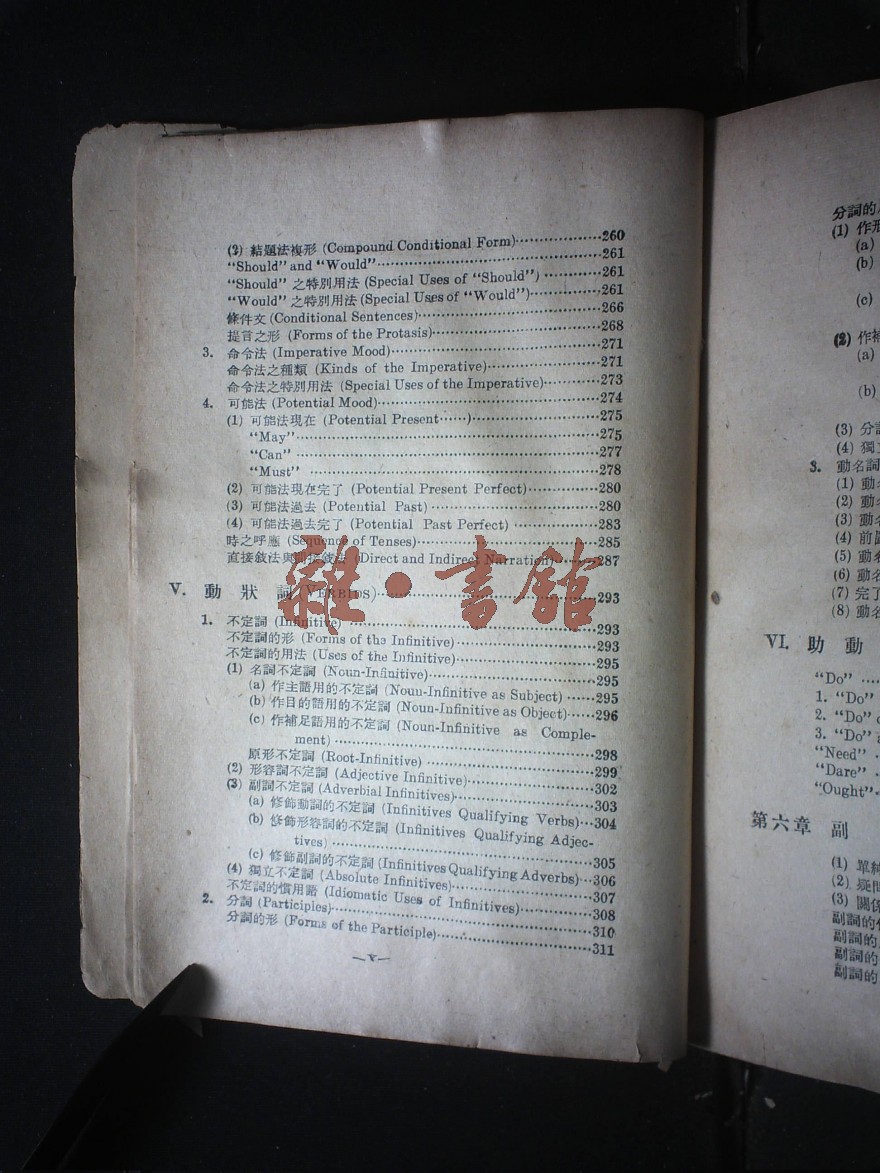 (3) 結題法複形 (Compound Conditional Form)··················260
“Should” and “Would”··················261
“Should” 之特別用法 (Special Uses of “Should”) ··················261
“Would” 之特別用法 (Special Uses of “Would”)··················261
條件文 (Conditional Sentences)··················266
提言之形 (Forms of the Protasis)··················268
3. 命令法 (Imperative Mood)··················271
命令法之種類 (Kinds of the Imperative)··················271
命令法之特別用法 (Special Uses of the Imperative)··················273
4. 可能法 (Potential Mood)··················274
(1) 可能法現在 (Potential Present······)··················275
“May”··················275
“Can” ··················277
“Must” ··················278
(2) 可能法現在完了 (Potential Present Perfect)··················280
(3) 可能法過去 (Potential Past) ··················280
(4) 可能法過去完了 (Potential Past Perfect) ··················283
時之呼應 (Sequence of Tenses)··················285
直接敘法與間接敘法 (Direct and Indirect Narration)··················287
雜·書館
V. 動狀詞 (VERBIDS)··················293
1. 不定詞 (Infinitive) ··················293
不定詞的形 (Forms of the Infinitive)··················293
不定詞的用法 (Uses of the Infinitive)··················295
(1) 名詞不定詞 (Noun-Infinitive)··················295
(a) 作主語用的不定詞 (Noun-Infinitive as Subject) ······295
(b) 作目的語用的不定詞 (Noun-Infinitive as Object)······296
(c) 作補足語用的不定詞 (Noun-Infinitive as Comple-
ment) ··················298
原形不定詞 (Root-Infinitive) ··················299
(2) 形容詞不定詞 (Adjective Infinitive)··················302
(3) 副詞不定詞 (Adverbial Infinitives)··················303
(a) 修飾動詞的不定詞 (Infinitives Qualifying Verbs)···304
(b) 修飾形容詞的不定詞 (Infinitives Qualifying Adjec-
tives) ··················305
(c) 修飾副詞的不定詞 (Infinitives Qualifying Adverbs)···306
(4) 獨立不定詞 (Absolute Infinitives)··················307
不定詞的慣用語 (Idiomatic Uses of Infinitives)··················308
2. 分詞 (Participles)··················310
分詞的形 (Forms of the Participle)··················311
分詞的
(1) 作形
(a)
(b)
(c)
(2) 作補
(a)
(b)
(3) 分詞
(4) 獨立
3. 動名詞
(1) 動名
(2) 動名
(3) 動名
(4) 前置
(5) 動名
(6) 動名
(7) 完了
(8) 動名
VI. 助動
“Do” ···
1. “Do”
2. “Do”
3. “Do”
“Need” ·
“Dare” ···
“Ought”·
第六章 副
(1) 單純
(2) 疑問
(3) 關係
副詞的
副詞的
副詞的
副詞的